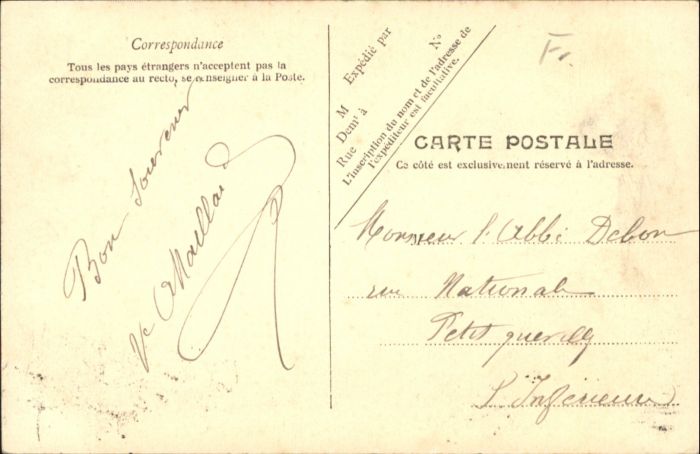 Correspondance
Tous les pays étrangers n'acceptent pas la
correspondance au recto, se renseigner à la Poste.
Bon Souvenir
Ve Maillard
Expédié par
M
Demt à
Rue
No
L'inscription du nom et de l'adresse de
l'expéditeur est facultative.
Fr.
CARTE POSTALE
Ce côté est exclusivement réservé à l'adresse.
Monsieur l'Abbé Debon
rue Nationale
Petit quevilly
S Inférieure